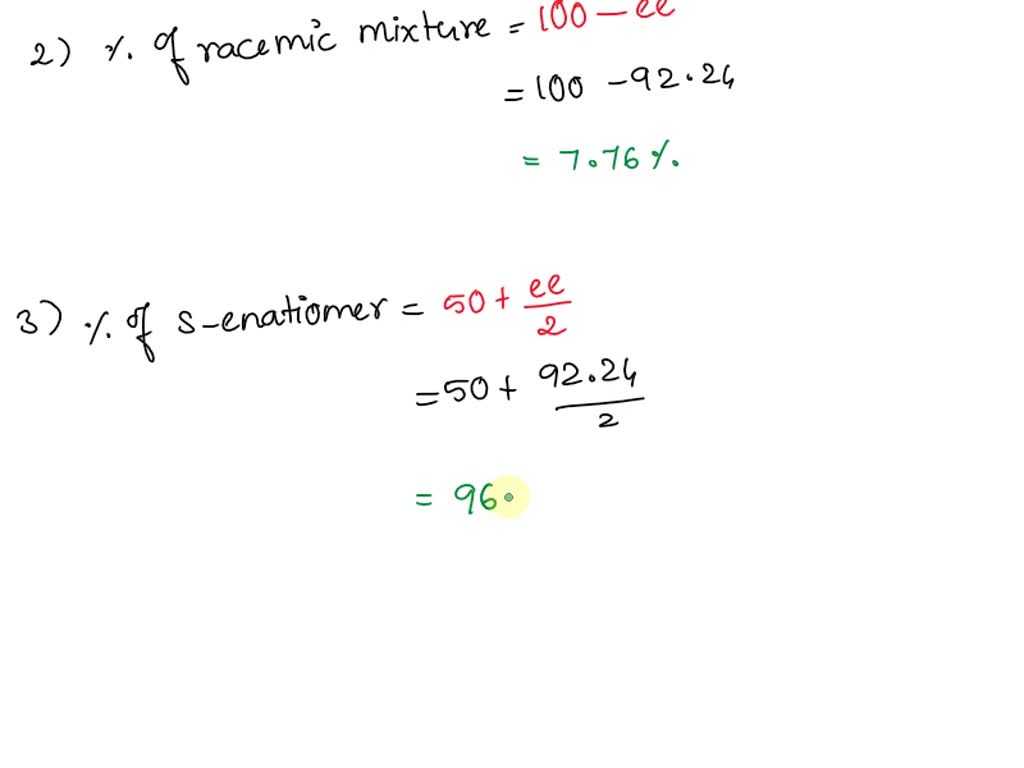 2) % of racemic mixture = 100 - ee
= 100 - 92.24
= 7.76 %.
3) % of s-enatiomer = 50 + ee/2
= 50 + 92.24/2
= 96.